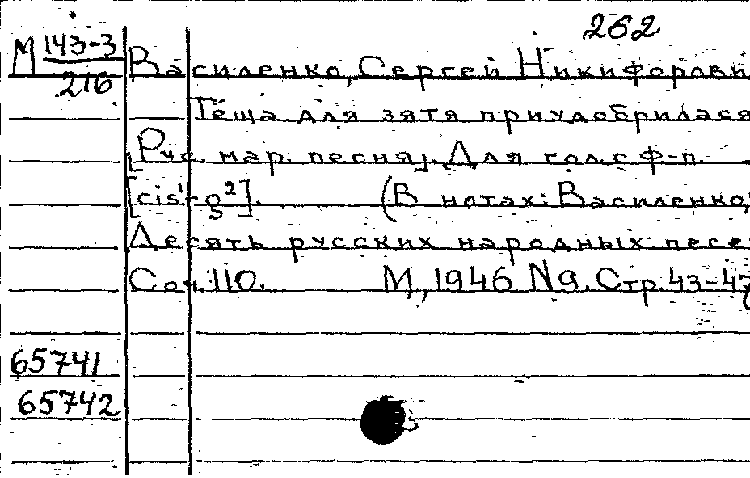 262
М 143-3
216
Василенко, Сергей Никифорови
Тёща для зятя приудобрилася
[Рус. нар. песня]. Для гол. с ф-п.
[cis¹-g²]. (В нотах: Василенко,
Десять русских народных песе
Соч. 110. М, 1946 №9. Стр. 43-47
65741
65742